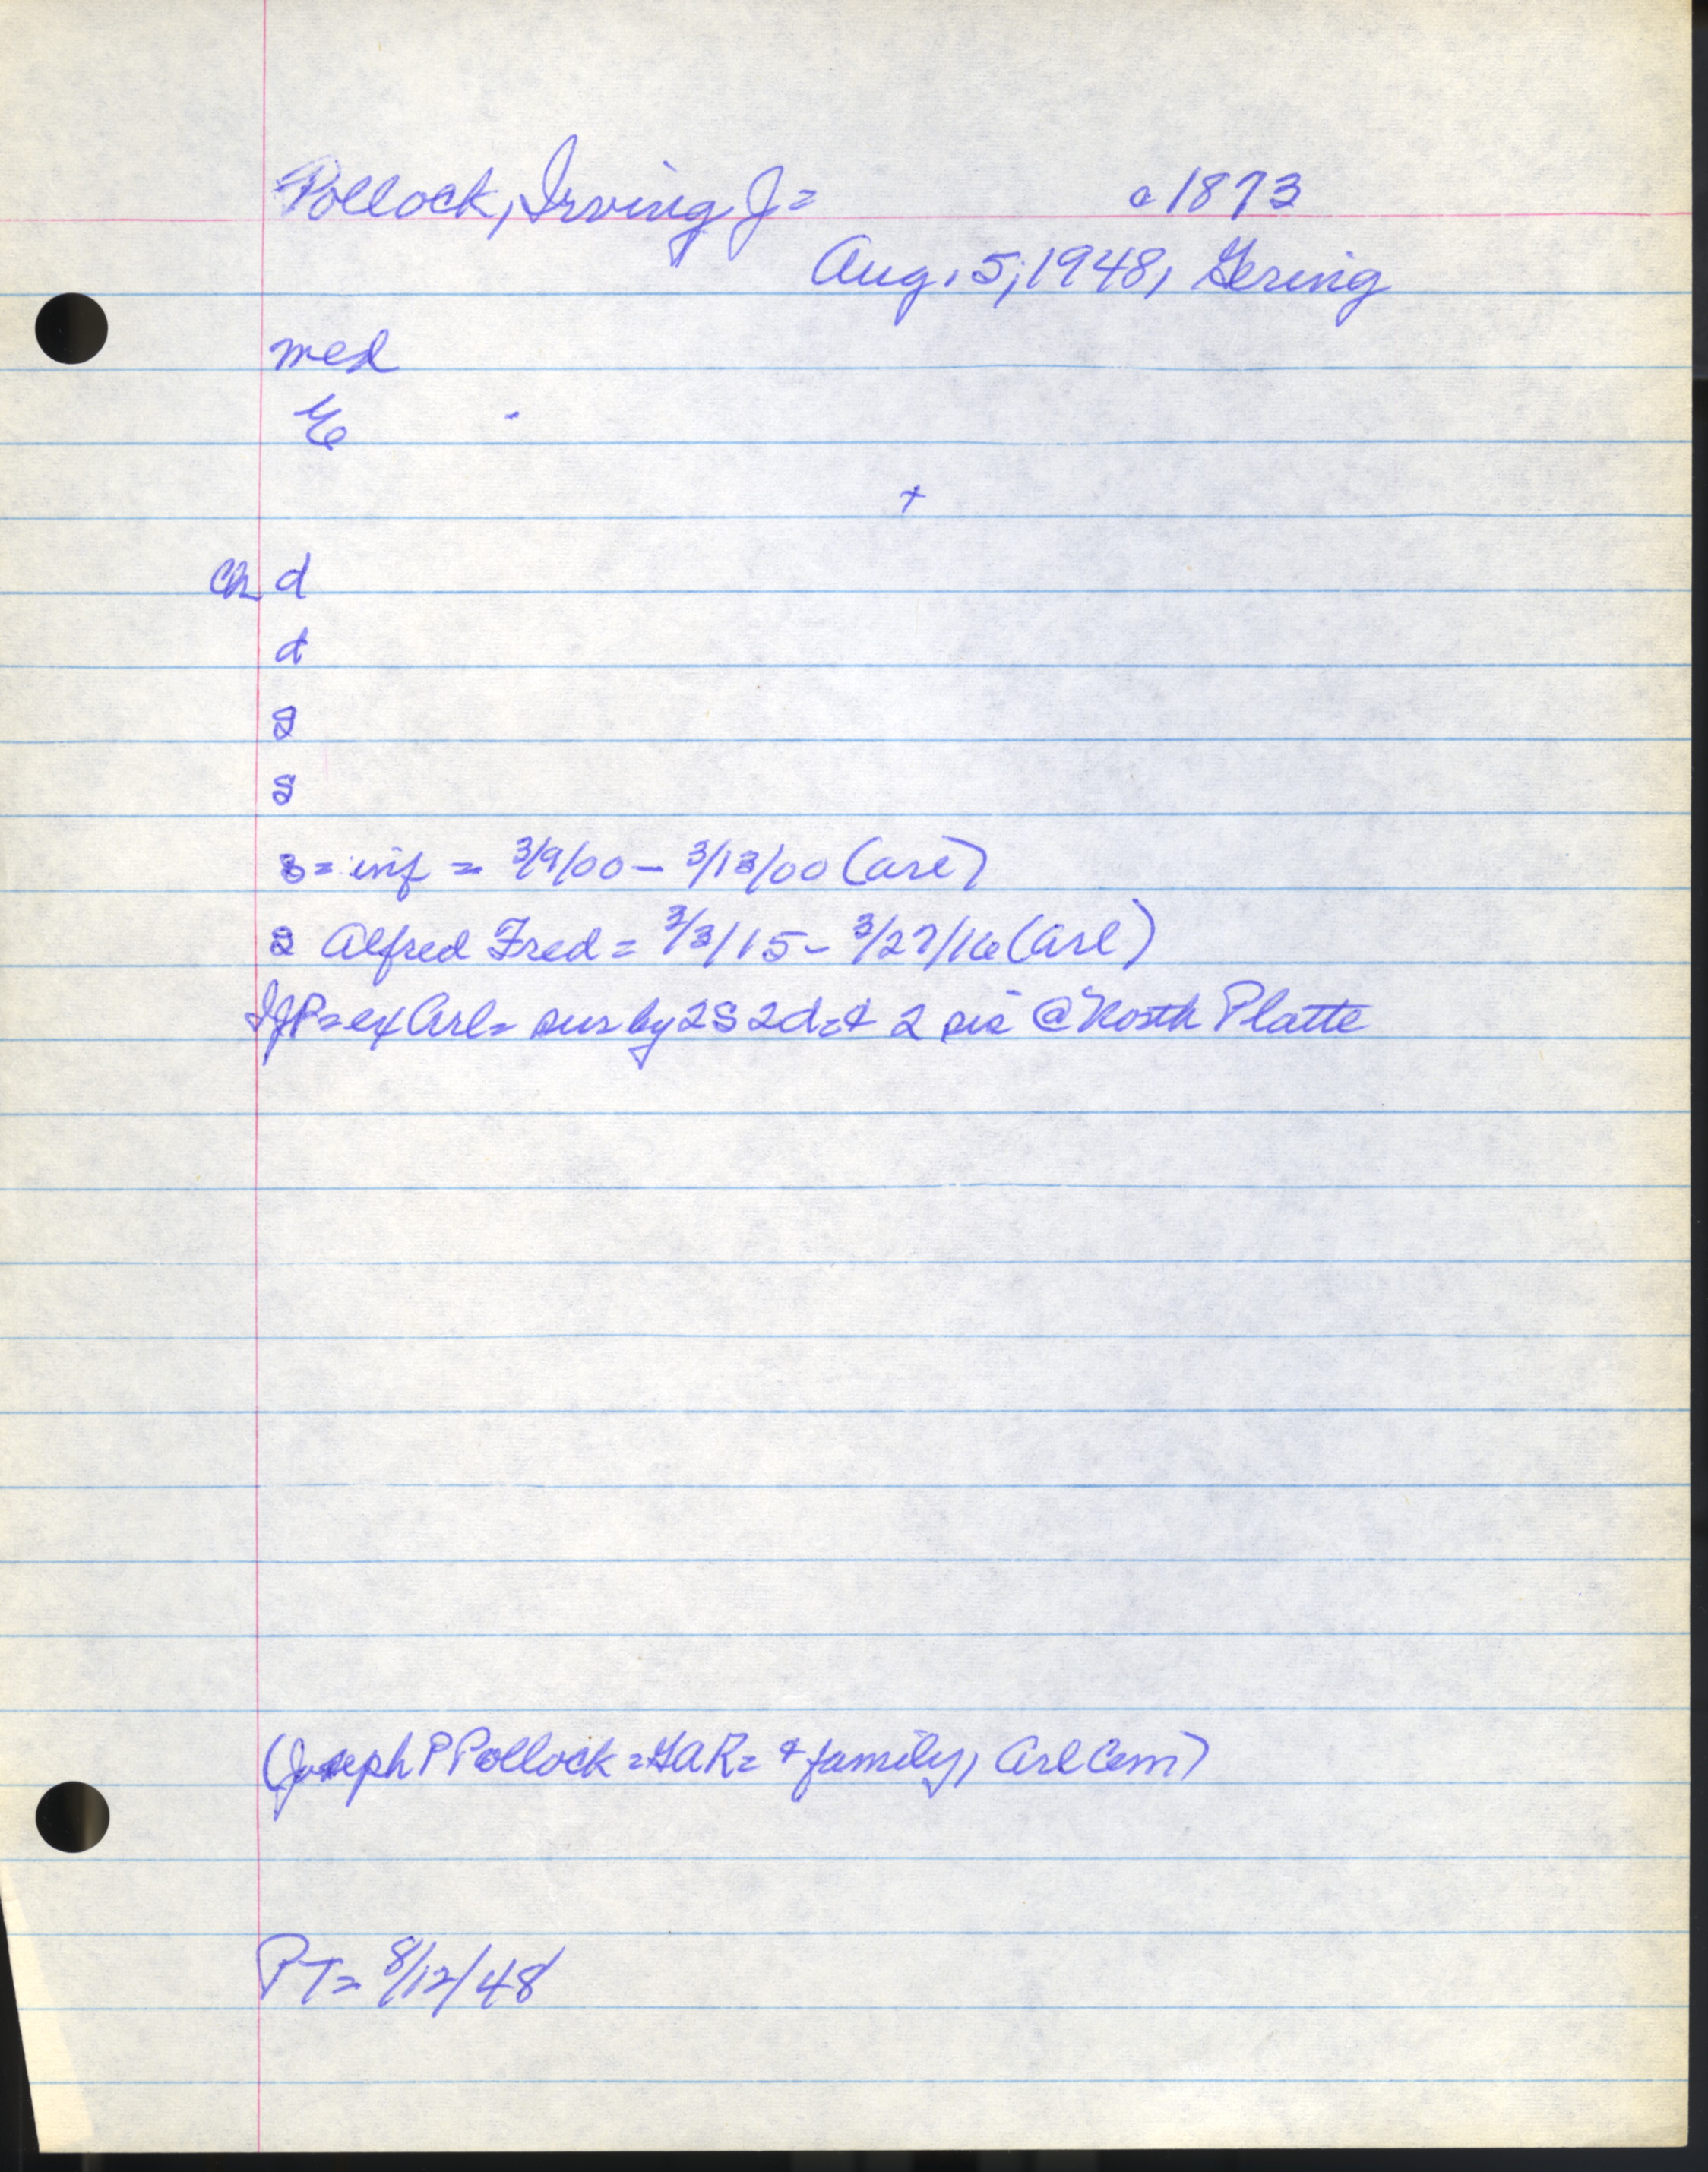 Pollock, Irving J = c 1873
Aug. 5, 1948, Gering
med
+
Ch d
d
s
s
s = inf = 3/9/00 – 3/13/00 (Arl)
s Alfred Fred = 3/3/15 – 3/27/16 (Arl)
IJP = ex Arl = sur by 2S 2d = & 2 sis @ North Platte
(Joseph P Pollock = GAR = & family, Arl Cem)
PT = 8/12/48